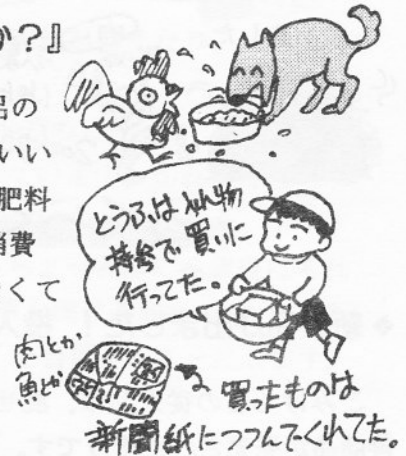 か？』
呂の
いい
肥料
消費
くて
とうふは入れ物
持参で買いに
行ってた。
肉とか
魚とか
買ったものは
新聞紙につつんでくれてた。